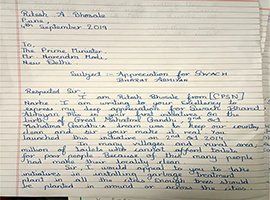 Ritesh A Bhosale
Pune,
4th September 2019
To,
The Prime Minister,
Mr Narendra Modi,
New Delhi
Subject :- Appreciation for SWACH
BHARAT ABHIYAN
Respected Sir,
I am Ritesh Bhosale from [CPSN]
I am writing to your Excellency to
express my deep appreciation for Swach Bharat
Abhiyan. This is your first initiatives on the
birth of Great Mahatma Gandhi, 2nd Oct
Mahatma Gandhi's dream was to keep our country
clean and sir your make it real, you
launched this initiative on 2nd Oct 2014
In many villages and rural area,
million of toilets who cannot afford toilets
for poor people. Because of this many people
had make their locality clean
Sir I would appeal to you to take
initiatives in installing garbage treatment
plant in all the city. Enough trees should
be planted in around or across the cities